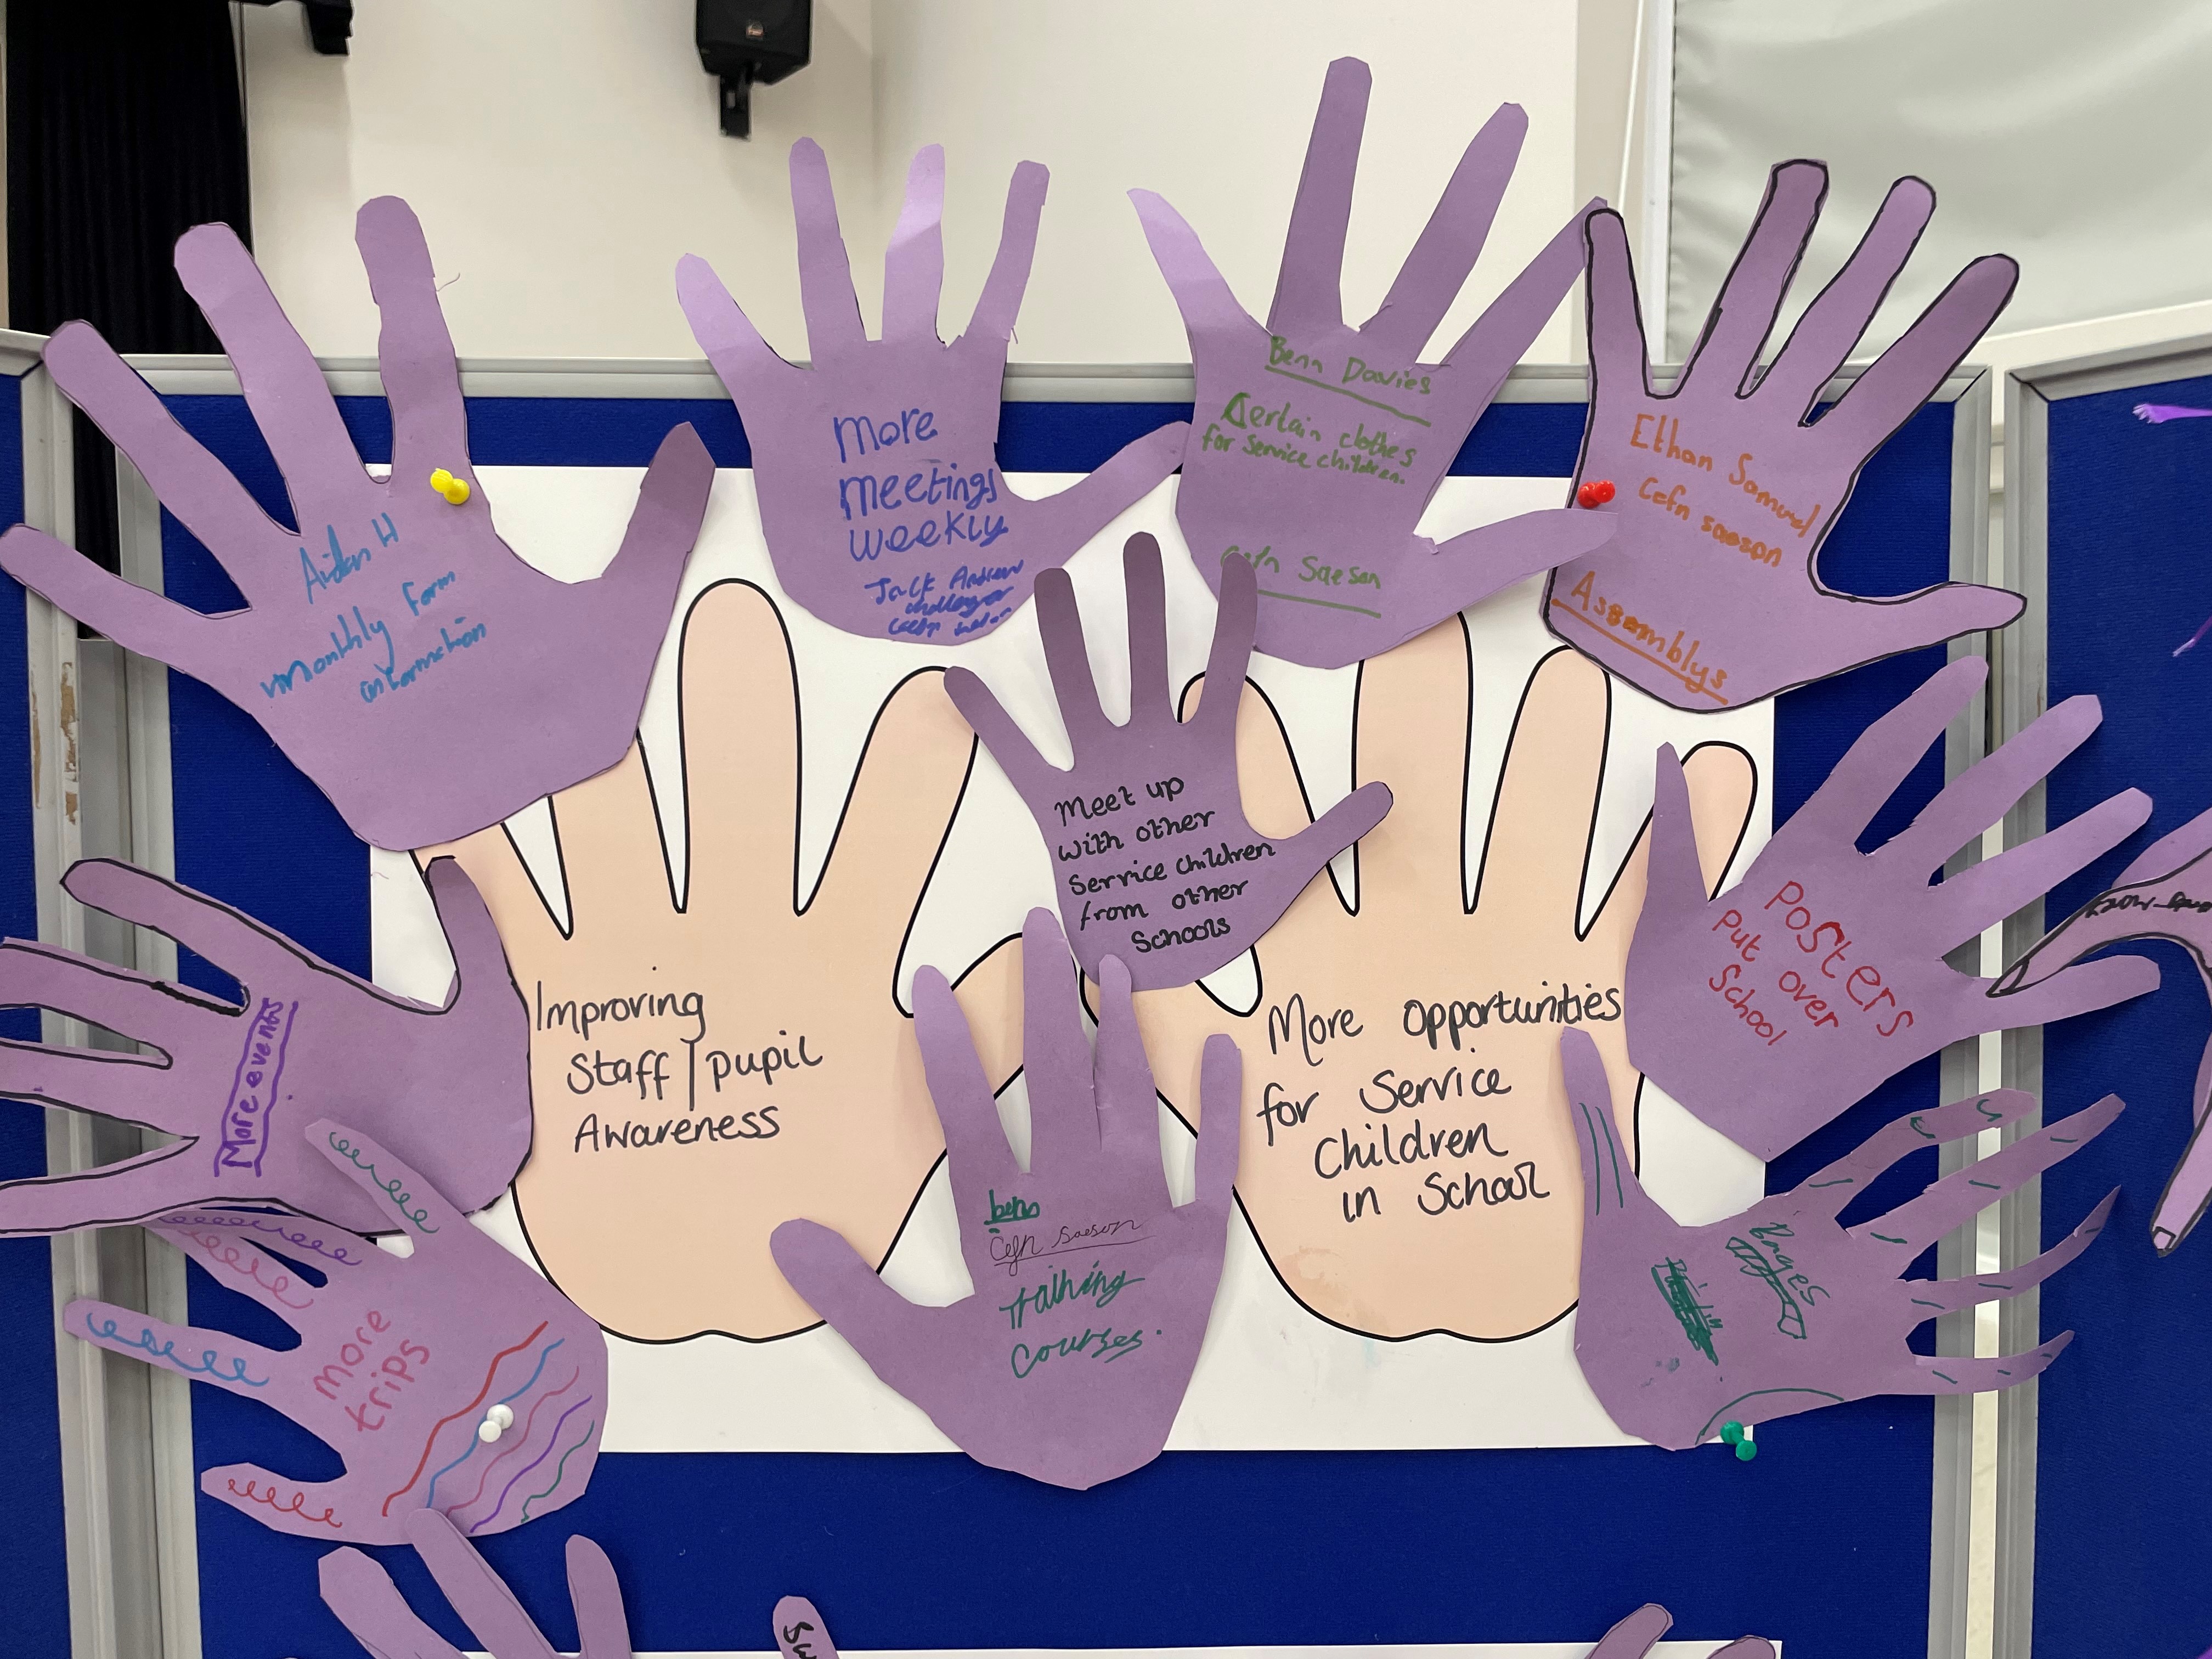 Aidan H
monthly form
information
More
meetings
weekly
Jack Andrew
Benn Davies
Certain clothes
for Service children.
Cefn Saeson
Ethan Samuel
Cefn saeson
Assemblys
Meet up
with other
Service children
from other
Schools
Posters
Put over
School
More events
Improving
Staff/pupil
Awareness
More opportunities
for Service
Children
in School
more
trips
ben
Cefn Saeson
Training
courses.